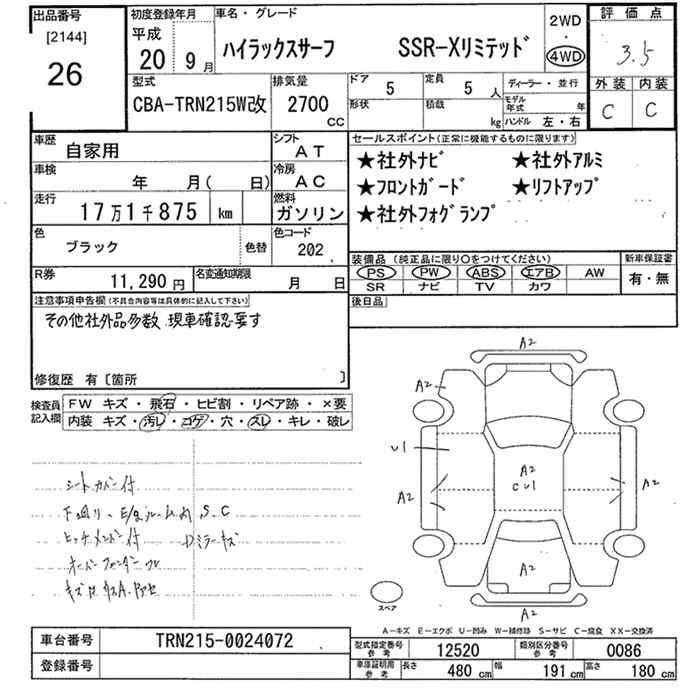 出品番号
[2144]
26
初度登録年月
平成
20 9月
車名・グレード
ハイラックスサーフ SSR-Xリミテッド
2WD
・
4WD
評価点
3.5
外装 内装
C C
型式
CBA-TRN215W改
排気量
2700
cc
ドア
5
定員
5 人
形状
積載
kg
ディーラー・並行
モデル年式 年
ハンドル 左・右
車歴
自家用
シフト
AT
車検
年 月( 日)
冷房
AC
走行
17万1千875 km
燃料
ガソリン
色
ブラック
色替
色コード
202
R券
11,290円
名変通知期限
月 日
セールスポイント(正常に機能するものに限ります)
★社外ナビ ★社外アルミ
★フロントガード ★リフトアップ
★社外フォグランプ
装備品 (純正品に限り○をつけてください)
PS PW ABS エアB AW
SR ナビ TV カワ
新車保証書
有・無
後日品
注意事項申告欄(不具合内容等は具体的に記入して下さい)
その他社外品多数 現車確認要す
修復歴 有〔箇所 〕
検査員記入欄
FW キズ・飛石・ヒビ割・リペア跡・×要
内装 キズ・汚レ・コゲ・穴・スレ・キレ・破レ
シートカバー付
下廻り、E/gルーム内 S.C
ヒッチメンバー付 Dミラーキズ
オーバーフェンダー
A2
A2
U1
A2
A2
C U1
A2
A2
A2
スペア
A-キズ E-エクボ U-凹み W-補修跡 S-サビ C-腐食 XX-交換済
車台番号
TRN215-0024072
登録番号
型式指定番号
参考
12520
類別区分番号
参考
0086
車庫証明用
参考
長さ 480 cm
幅 191 cm
高さ 180 cm